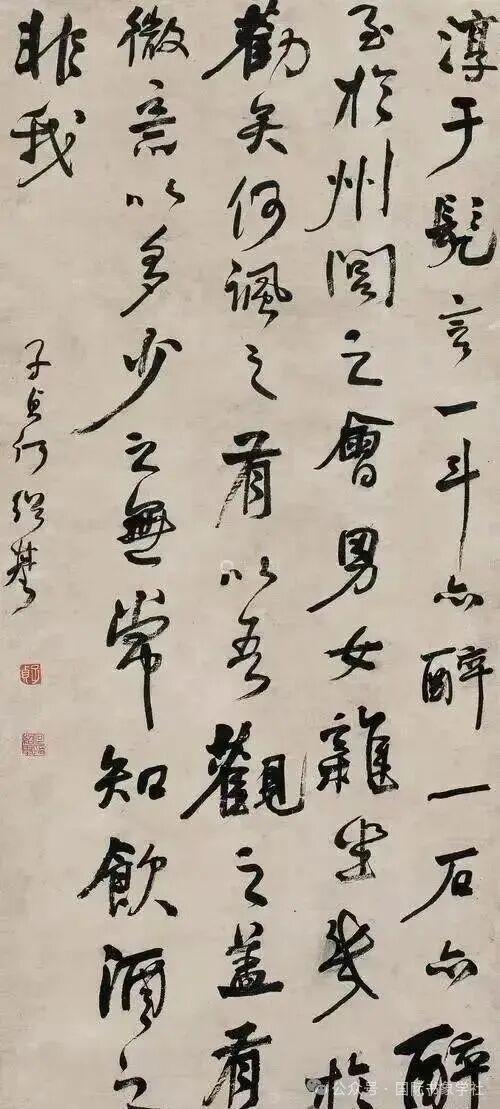 淳于髡言一斗亦醉一石亦醉
至於州閭之會男女雜坐幾於
勸矣何諷之有以吾觀之蓋有
微意以多少之無常知飲酒之
非我
子貞何紹基
子貞
公众号·国际书象学社